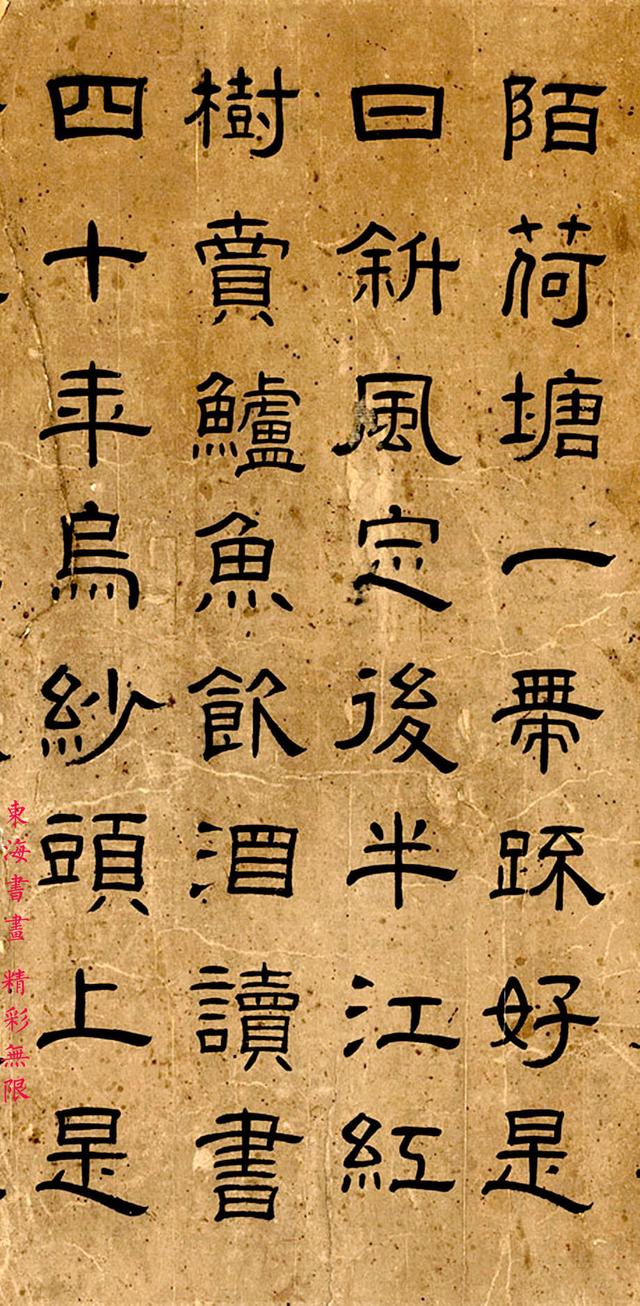 陌荷塘一帶疏好是
日斜風定後半江紅
樹賣鱸魚飲酒讀書
四十年烏紗頭上是
東海書畫 精彩無限